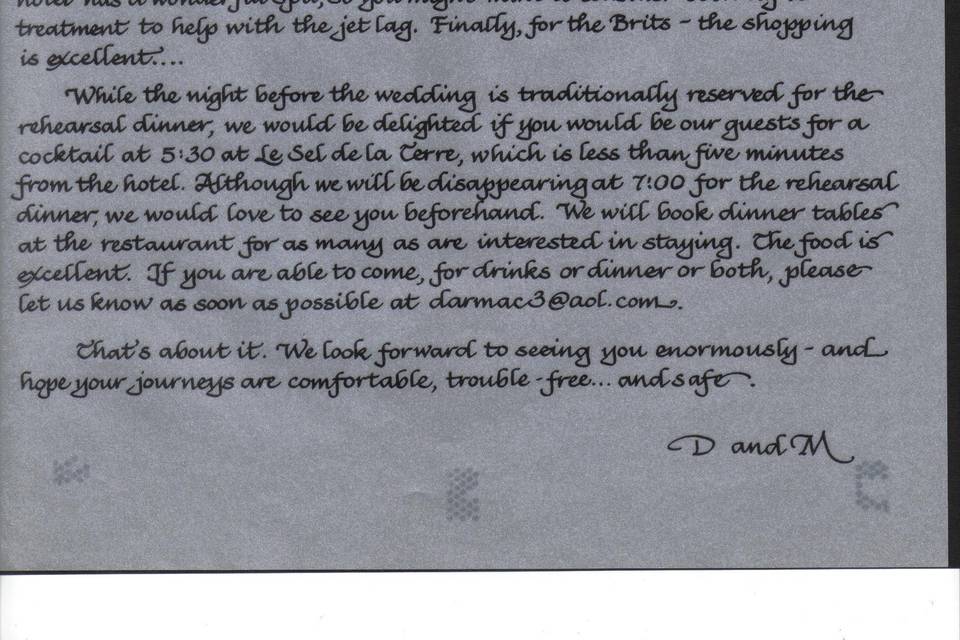 hotel has a wonderful spa, so you might want to consider booking a
treatment to help with the jet lag. Finally, for the Brits - the shopping
is excellent....
While the night before the wedding is traditionally reserved for the
rehearsal dinner, we would be delighted if you would be our guests for a
cocktail at 5:30 at Le Sel de la Terre, which is less than five minutes
from the hotel. Although we will be disappearing at 7:00 for the rehearsal
dinner, we would love to see you beforehand. We will book dinner tables
at the restaurant for as many as are interested in staying. The food is
excellent. If you are able to come, for drinks or dinner or both, please
let us know as soon as possible at darmac3@aol.com.
That's about it. We look forward to seeing you enormously - and
hope your journeys are comfortable, trouble-free... and safe.
D and M